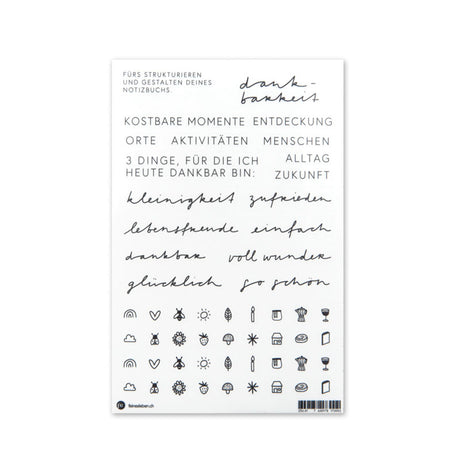 FÜRS STRUKTURIEREN
UND GESTALTEN DEINES
NOTIZBUCHS.
dank-
barkeit
KOSTBARE MOMENTE ENTDECKUNG
ORTE AKTIVITÄTEN MENSCHEN
3 DINGE, FÜR DIE ICH
HEUTE DANKBAR BIN:
ALLTAG
ZUKUNFT
kleinigkeit zufrieden
lebensfreude einfach
dankbar voll wunder
glücklich so schön
feinesleben.ch